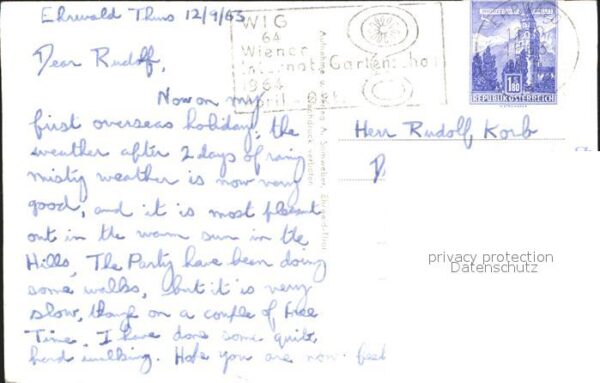 Ehrwald Thurs 12/9/63
Dear Rudolf,
Now on my
first overseas holiday, the
weather after 2 days of rainy
misty weather is now very
good, and it is most pleasant
out in the warm sun in the
Hills. The Party have been doing
some walks, but it is very
slow, though on a couple of free
Time. I have done some quite,
hard walking. Hope you are now feel
WIG
64
Wiener
Internat. Gartenschau
1964
April -
REPUBLIK ÖSTERREICH
1.80
Herr Rudolf Korb
privacy protection
Datenschutz